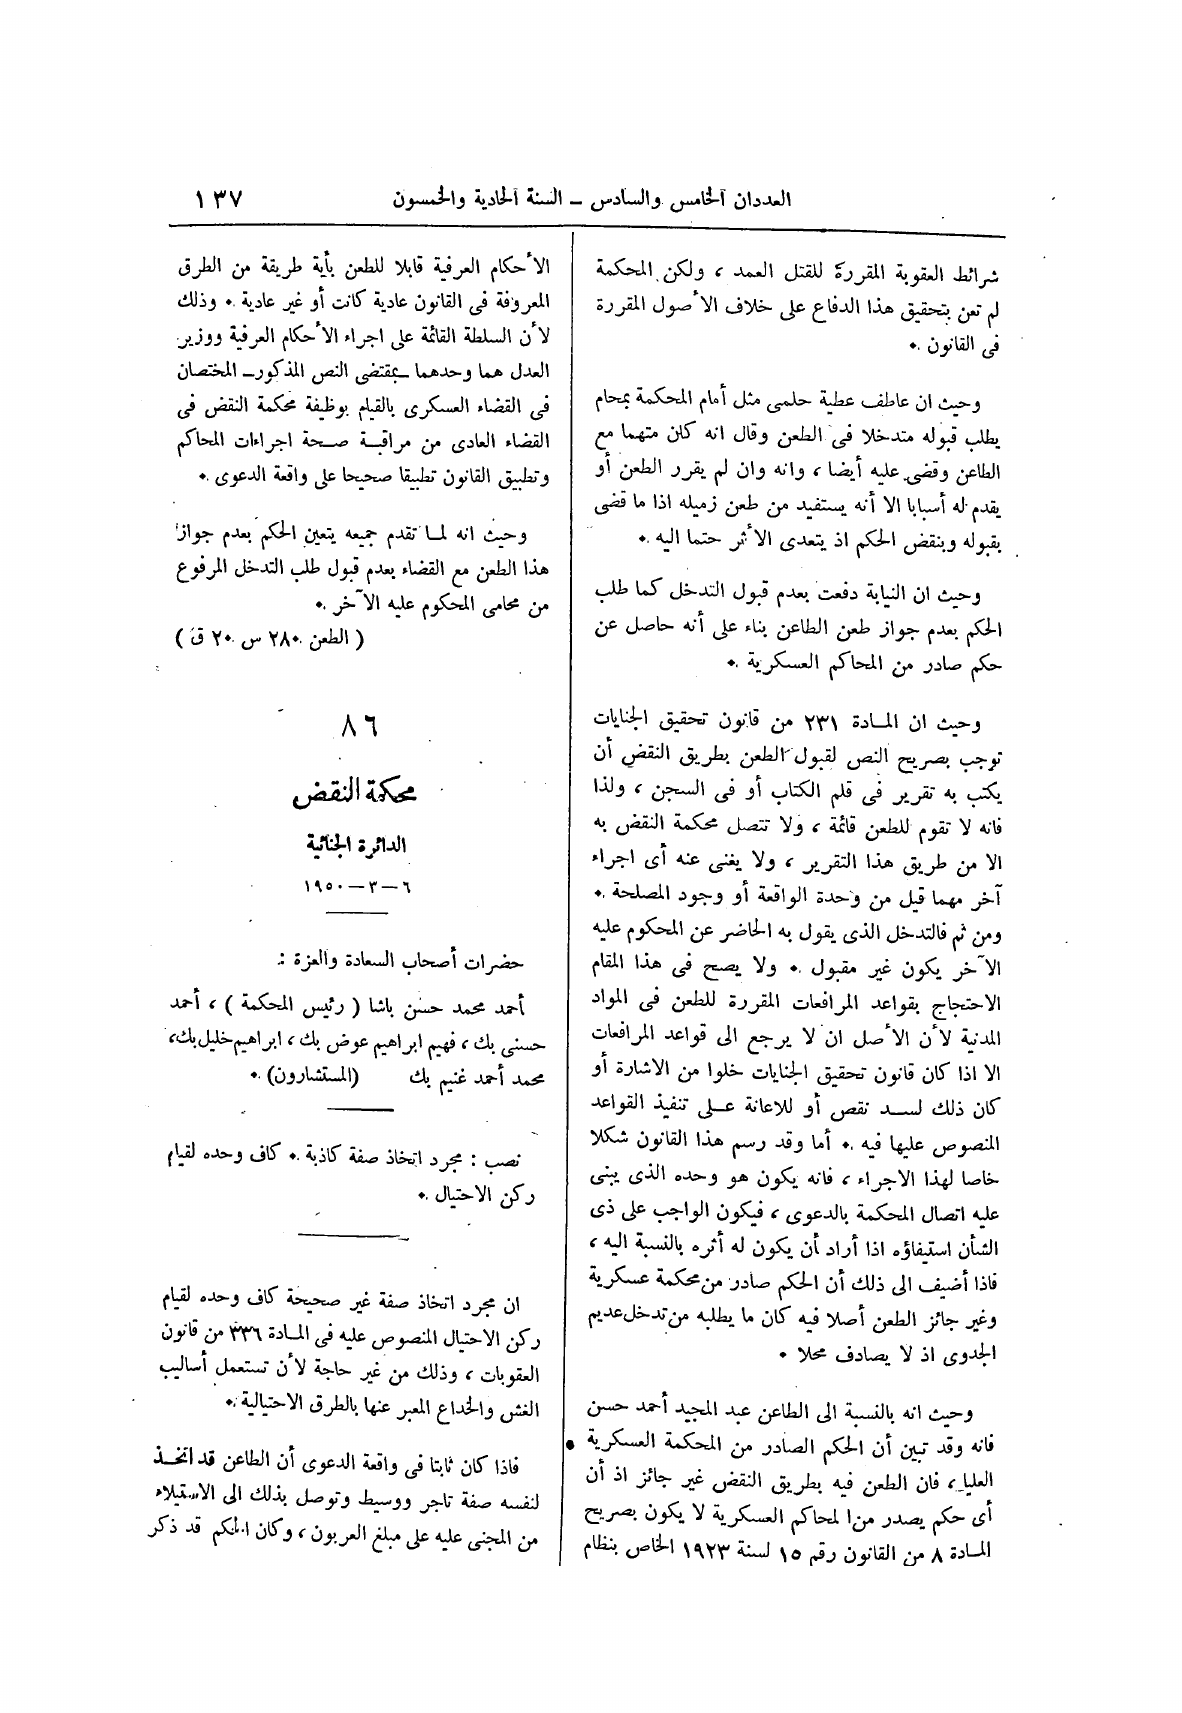 العددان الخامس والسادس – السنة الحادية والخمسون
١٣٧
شرائط العقوبة المقررة للقتل العمد ، ولكن المحكمة
لم تعن بتحقيق هذا الدفاع على خلاف الأصول المقررة
فى القانون .
وحيث ان عاطف عطية حلمى مثل أمام المحكمة بمحام
يطلب قبوله متدخلا فى الطعن وقال انه كان متهما مع
الطاعن وقضى عليه أيضا ، وانه وان لم يقرر الطعن أو
يقدم له أسبابا الا أنه يستفيد من طعن زميله اذا ما قضى
بقبوله وبنقض الحكم اذ يتعدى الأثر حتما اليه .
وحيث ان النيابة دفعت بعدم قبول التدخل كما طلب
الحكم بعدم جواز طعن الطاعن بناء على أنه حاصل عن
حكم صادر من المحاكم العسكرية .
وحيث ان المادة ٢٣١ من قانون تحقيق الجنايات
توجب بصريح النص لقبول الطعن بطريق النقض أن
يكتب به تقرير فى قلم الكتاب أو فى السجن ، ولذا
فانه لا تقوم للطعن قائمة ، ولا تتصل محكمة النقض به
الا من طريق هذا التقرير ، ولا يغنى عنه أى اجراء
آخر مهما قيل من وحدة الواقعة أو وجود المصلحة .
ومن ثم فالتدخل الذى يقول به الحاضر عن المحكوم عليه
الآخر يكون غير مقبول . ولا يصح فى هذا المقام
الاحتجاج بقواعد المرافعات المقررة للطعن فى المواد
المدنية لأن الأصل ان لا يرجع الى قواعد المرافعات
الا اذا كان قانون تحقيق الجنايات خلوا من الاشارة أو
كان ذلك لسد نقص أو للاعانة على تنفيذ القواعد
المنصوص عليها فيه . أما وقد رسم هذا القانون شكلا
خاصا لهذا الاجراء ، فانه يكون هو وحده الذى يبنى
عليه اتصال المحكمة بالدعوى ، فيكون الواجب على ذى
الشأن استيفاؤه اذا أراد أن يكون له أثره بالنسبة اليه ،
فاذا أضيف الى ذلك أن الحكم صادر من محكمة عسكرية
وغير جائز الطعن أصلا فيه كان ما يطلبه من تدخل عديم
الجدوى اذ لا يصادف محلا .
وحيث انه بالنسبة الى الطاعن عبد المجيد أحمد حسن
فانه وقد تبين أن الحكم الصادر من المحكمة العسكرية
العليا ، فان الطعن فيه بطريق النقض غير جائز اذ أن
أى حكم يصدر من المحاكم العسكرية لا يكون بصريح
المادة ٨ من القانون رقم ١٥ لسنة ١٩٢٣ الخاص بنظام
الأحكام العرفية قابلا للطعن بأية طريقة من الطرق
المعروفة فى القانون عادية كانت أو غير عادية . وذلك
لأن السلطة القائمة على اجراء الأحكام العرفية ووزير
العدل هما وحدهما – بمقتضى النص المذكور – المختصان
فى القضاء العسكرى بالقيام بوظيفة محكمة النقض فى
القضاء العادى من مراقبة صحة اجراءات المحاكم
وتطبيق القانون تطبيقا صحيحا على واقعة الدعوى .
وحيث انه لما تقدم جميعه يتعين الحكم بعدم جواز
هذا الطعن مع القضاء بعدم قبول طلب التدخل المرفوع
من محامى المحكوم عليه الآخر .
( الطعن ٢٨٠ س ٢٠ ق )
٨٦
محكمة النقض
الدائرة الجنائية
٦ – ٣ – ١٩٥٠
حضرات أصحاب السعادة والعزة :
أحمد محمد حسن باشا ( رئيس المحكمة ) ، أحمد
حسنى بك ، فهيم ابراهيم عوض بك ، ابراهيم خليل بك ،
محمد أحمد غنيم بك (المستشارون) .
نصب : مجرد اتخاذ صفة كاذبة . كاف وحده لقيام
ركن الاحتيال .
ان مجرد اتخاذ صفة غير صحيحة كاف وحده لقيام
ركن الاحتيال المنصوص عليه فى المادة ٣٣٦ من قانون
العقوبات ، وذلك من غير حاجة لأن تستعمل أساليب
الغش والخداع المعبر عنها بالطرق الاحتيالية .
فاذا كان ثابتا فى واقعة الدعوى أن الطاعن قد اتخذ
لنفسه صفة تاجر ووسيط وتوصل بذلك الى الاستيلاء
من المجنى عليه على مبلغ العربون ، وكان الحكم قد ذكر